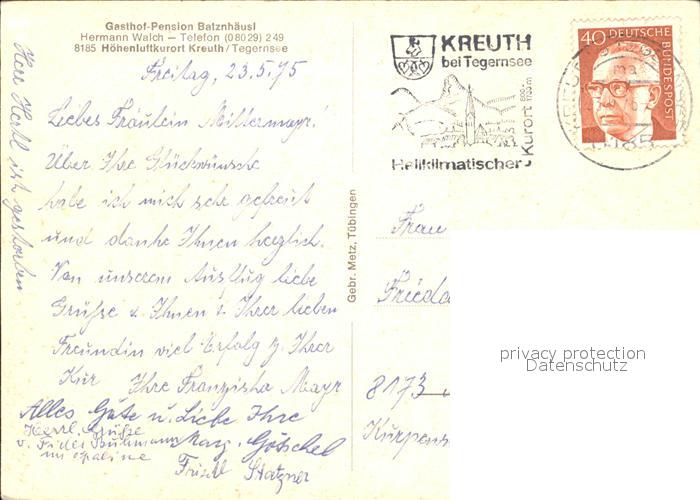 Gasthof-Pension Batznhäusl
Hermann Walch – Telefon (08029) 249
8185 Höhenluftkurort Kreuth / Tegernsee
Freitag, 23.5.75
Liebes Fräulein Mittermayr!
Über Ihre Glückwünsche
habe ich mich sehr gefreut
und danke Ihnen herzlich.
Von unserem Ausflug liebe
Grüße u. Ihnen u. Ihrer lieben
Freundin viel Erfolg z. Ihrer
Kur Ihre Franziska Mayr
Alles Gute u. Liebe Ihre
Herzl. Grüße
Marg. Götschel
v. Fides
Herr Hertl ist gestorben
Gebr. Metz, Tübingen
KREUTH
bei Tegernsee
Heilklimatischer
Kurort
40 DEUTSCHE
BUNDESPOST
8185
Frau
Frieda
8173
privacy protection
Datenschutz